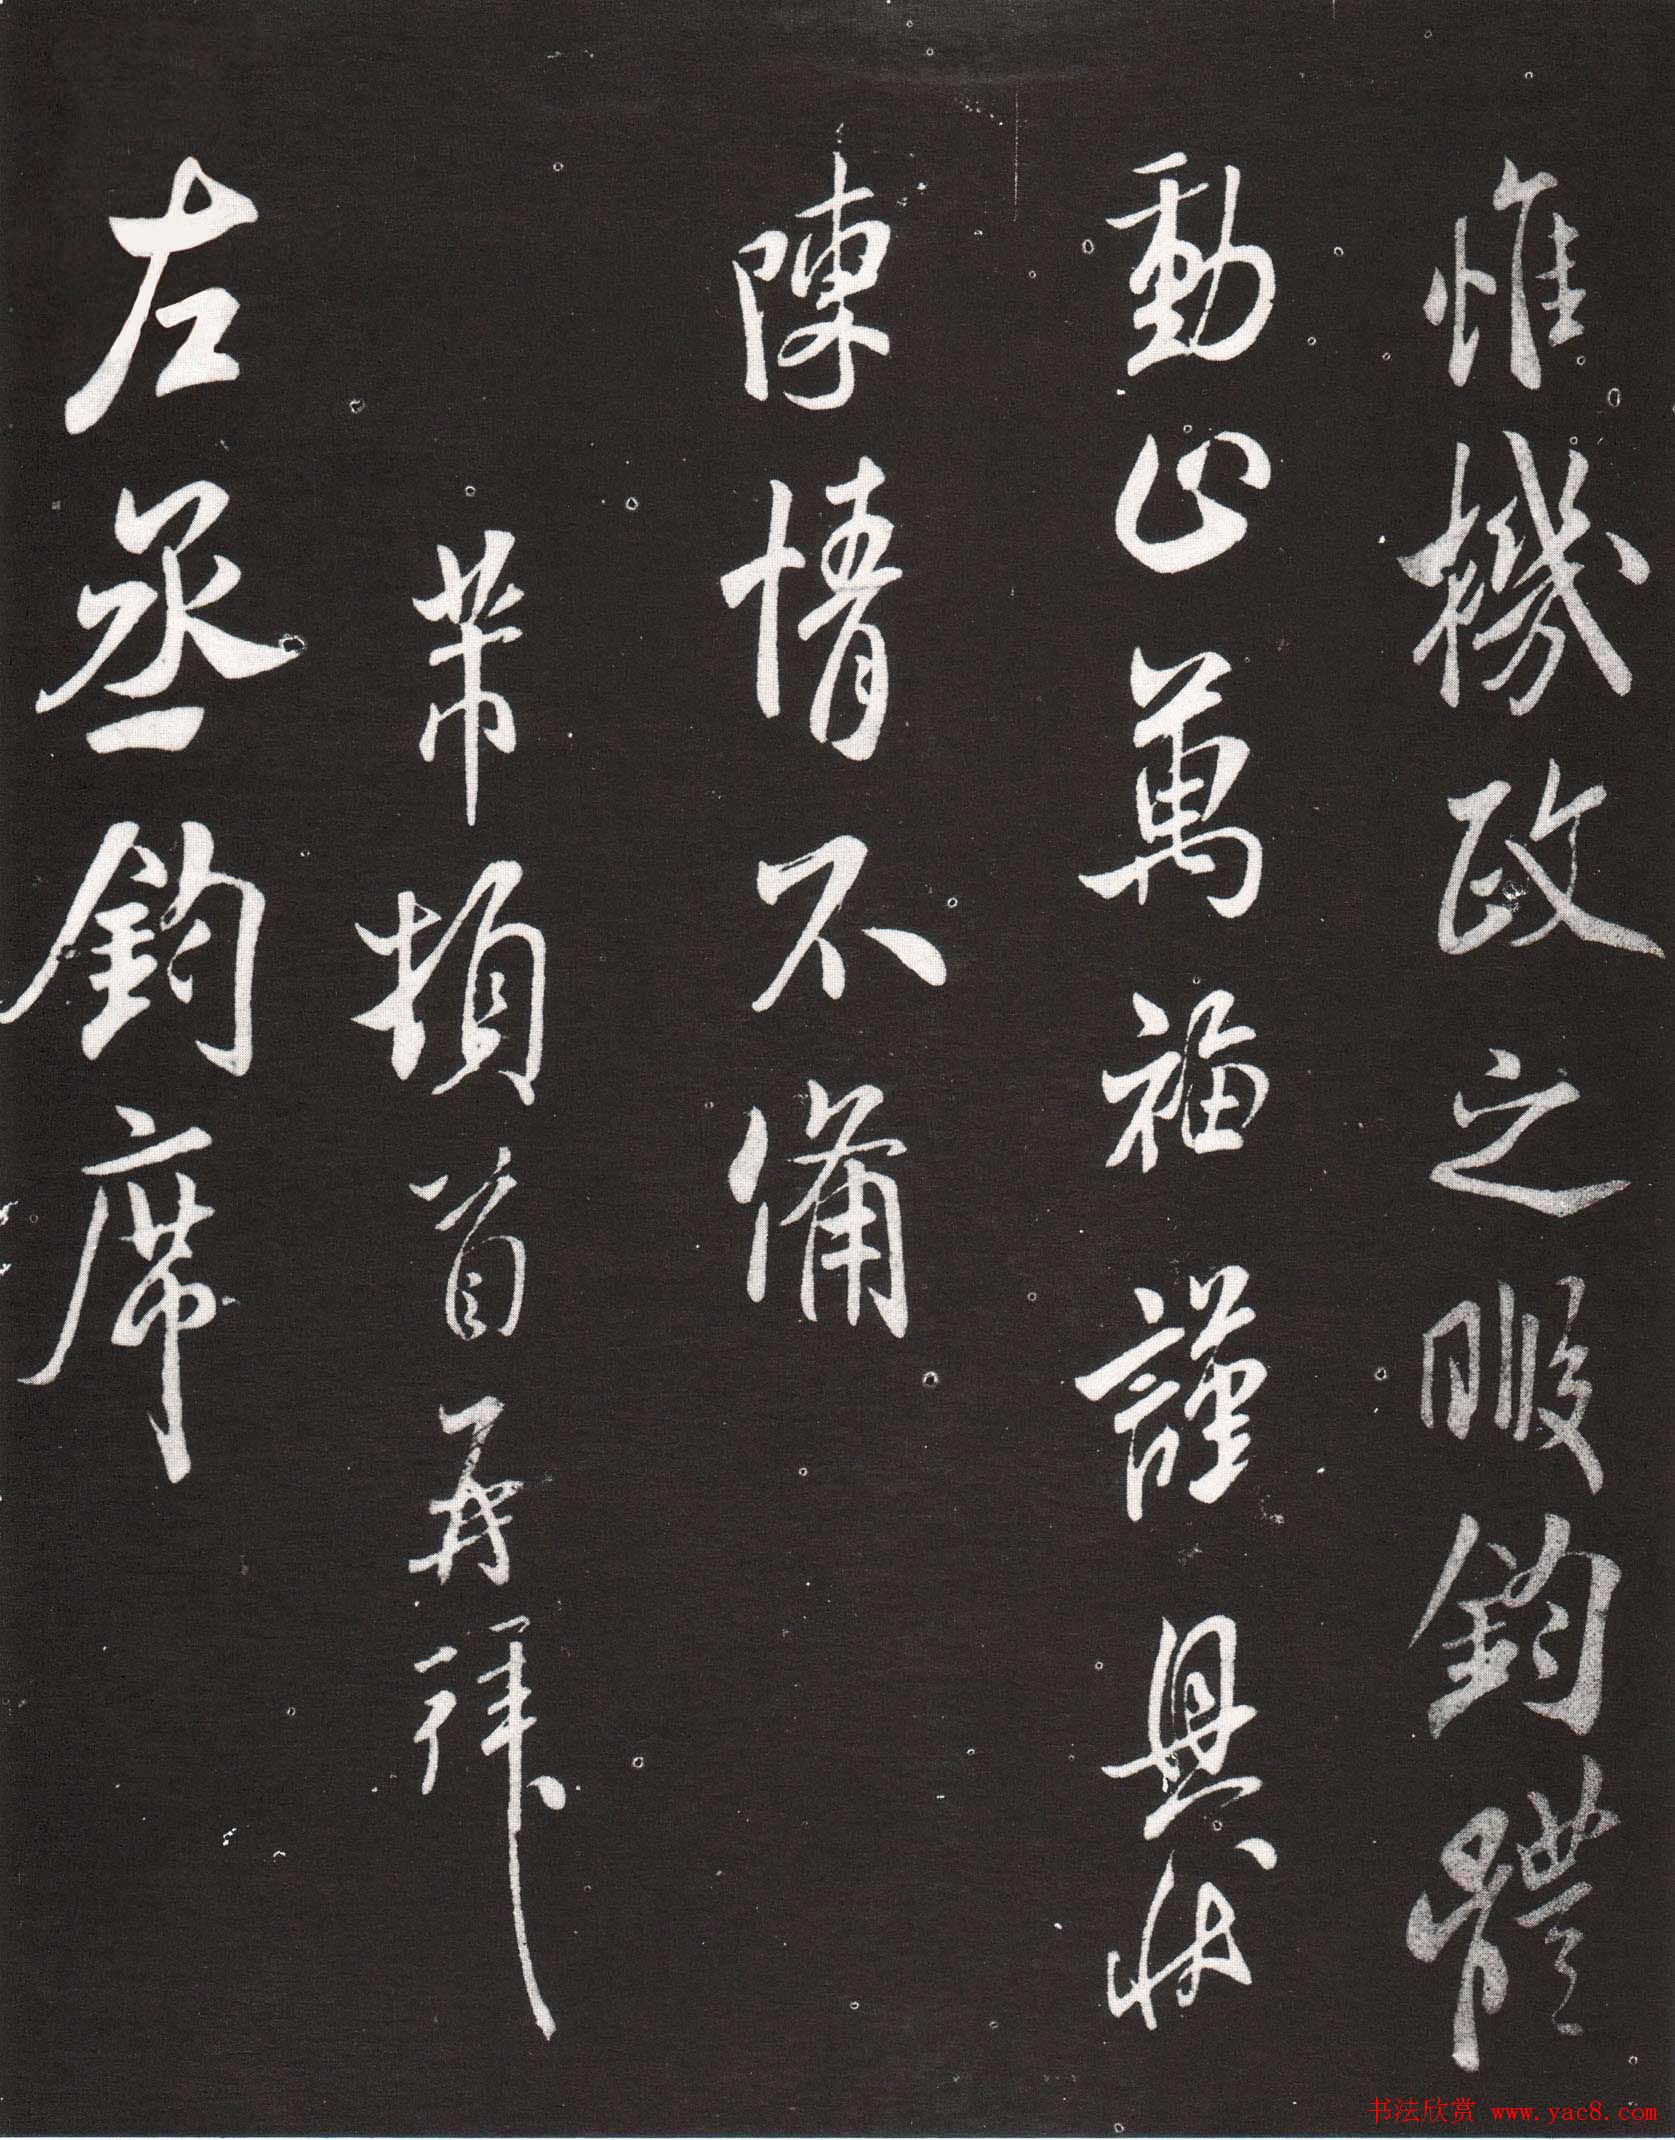 惟機政之暇鈞體
動止萬福謹具狀
陳情不備
芾頓首再拜
左丞鈞席
书法欣赏 www.yac8.com